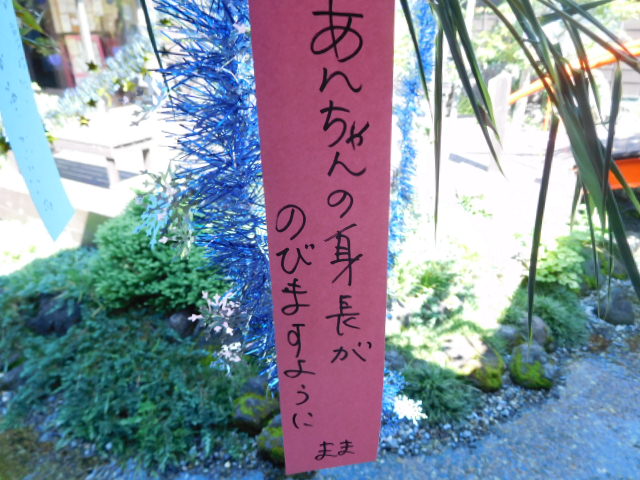 あんちゃんの身長が
のびますように
まま